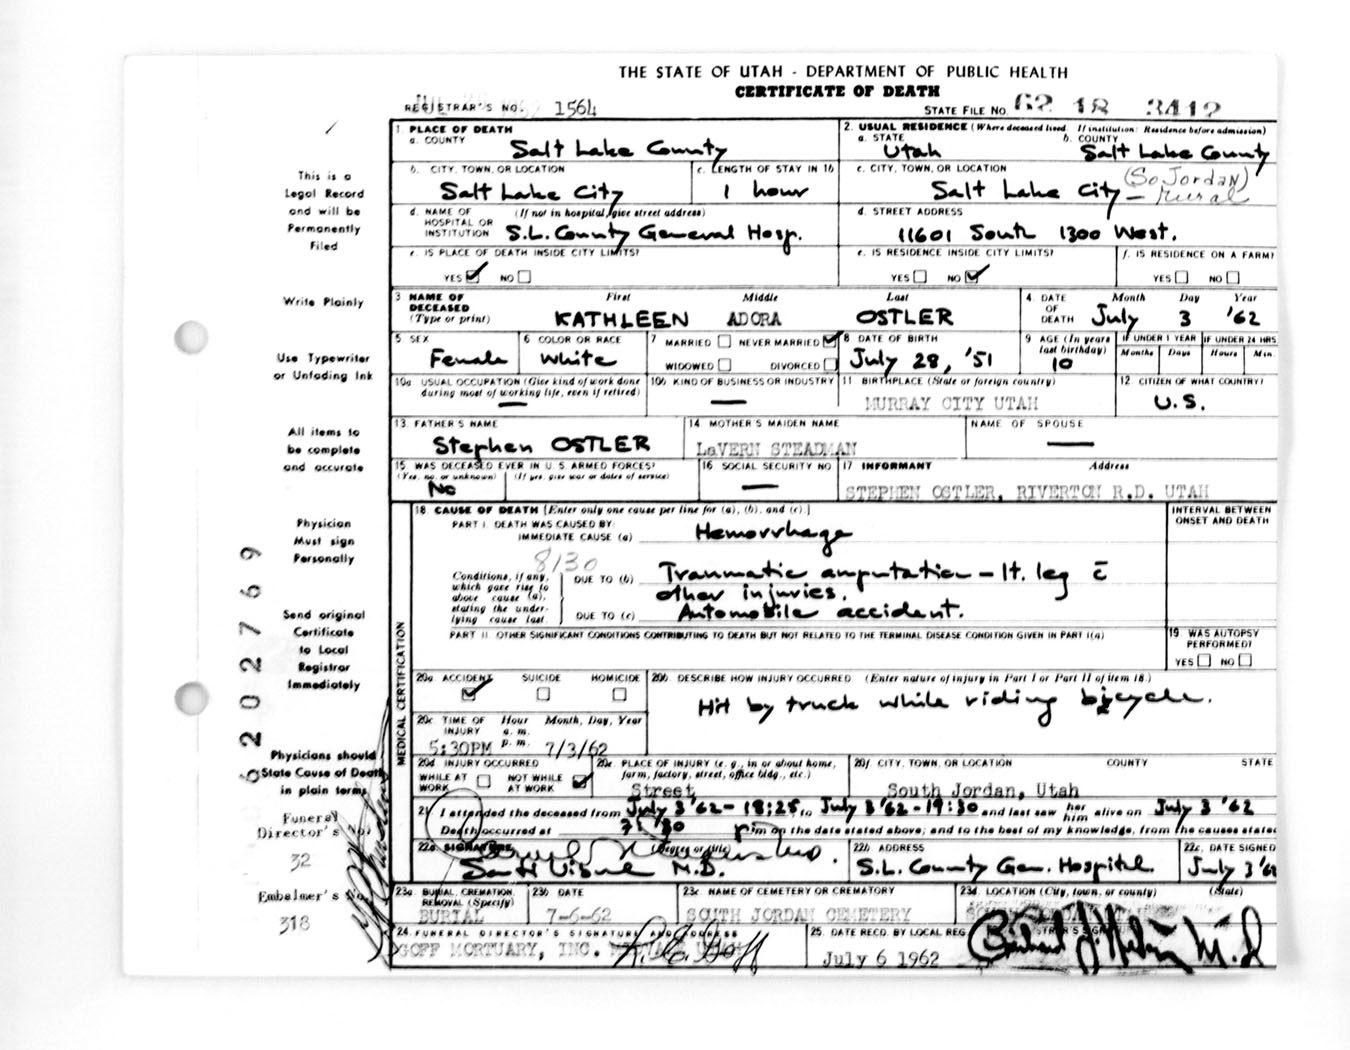 THE STATE OF UTAH - DEPARTMENT OF PUBLIC HEALTH
CERTIFICATE OF DEATH
REGISTRAR'S NO. 1564
STATE FILE NO. 62 18 3412
This is a Legal Record and will be Permanently Filed
Write Plainly
Use Typewriter or Unfading Ink
All items to be complete and accurate
Physician Must sign Personally
Send original Certificate to Local Registrar Immediately
Physicians should State Cause of Death in plain terms
Funeral Director's No.
32
Embalmer's No.
318
6202769
1. PLACE OF DEATH
a. COUNTY Salt Lake County
2. USUAL RESIDENCE (Where deceased lived. If institution: Residence before admission)
a. STATE Utah b. COUNTY Salt Lake County
b. CITY, TOWN, OR LOCATION Salt Lake City
c. LENGTH OF STAY IN 1b 1 hour
c. CITY, TOWN, OR LOCATION Salt Lake City - (So Jordan) Rural
d. NAME OF HOSPITAL OR INSTITUTION (If not in hospital, give street address) S.L. County General Hosp.
d. STREET ADDRESS 11601 South 1300 West.
e. IS PLACE OF DEATH INSIDE CITY LIMITS? YES NO
e. IS RESIDENCE INSIDE CITY LIMITS? YES NO
f. IS RESIDENCE ON A FARM? YES NO
3. NAME OF DECEASED (Type or print) First Middle Last
KATHLEEN ADORA OSTLER
4. DATE OF DEATH Month Day Year
July 3 '62
5. SEX Female
6. COLOR OR RACE White
7. MARRIED NEVER MARRIED WIDOWED DIVORCED
8. DATE OF BIRTH July 28, '51
9. AGE (In years last birthday) 10
IF UNDER 1 YEAR Months Days
IF UNDER 24 HRS. Hours Min.
10a. USUAL OCCUPATION (Give kind of work done during most of working life, even if retired) —
10b. KIND OF BUSINESS OR INDUSTRY —
11. BIRTHPLACE (State or foreign country) MURRAY CITY UTAH
12. CITIZEN OF WHAT COUNTRY? U.S.
13. FATHER'S NAME Stephen OSTLER
14. MOTHER'S MAIDEN NAME LaVERN STEADMAN
NAME OF SPOUSE —
15. WAS DECEASED EVER IN U. S. ARMED FORCES? (Yes, no, or unknown) (If yes, give war or dates of service) No
16. SOCIAL SECURITY NO. —
17. INFORMANT Address
STEPHEN OSTLER, RIVERTON R.D. UTAH
MEDICAL CERTIFICATION
18. CAUSE OF DEATH [Enter only one cause per line for (a), (b), and (c).]
INTERVAL BETWEEN ONSET AND DEATH
PART I. DEATH WAS CAUSED BY:
IMMEDIATE CAUSE (a) Hemorrhage
8130
Conditions, if any, which gave rise to above cause (a), stating the underlying cause last.
DUE TO (b) Traumatic amputation - lt. leg c̄ other injuries.
DUE TO (c) Automobile accident.
PART II. OTHER SIGNIFICANT CONDITIONS CONTRIBUTING TO DEATH BUT NOT RELATED TO THE TERMINAL DISEASE CONDITION GIVEN IN PART I(a)
19. WAS AUTOPSY PERFORMED? YES NO
20a. ACCIDENT SUICIDE HOMICIDE
20b. DESCRIBE HOW INJURY OCCURRED (Enter nature of injury in Part I or Part II of item 18.)
Hit by truck while riding bicycle.
20c. TIME OF INJURY Hour Month, Day, Year a. m. p. m.
5:30PM 7/3/62
20d. INJURY OCCURRED WHILE AT WORK NOT WHILE AT WORK
20e. PLACE OF INJURY (e. g., in or about home, farm, factory, street, office bldg., etc.) Street
20f. CITY, TOWN, OR LOCATION COUNTY STATE
South Jordan, Utah
21. I attended the deceased from July 3 '62 - 18:25, to July 3 '62 - 19:30 and last saw her him alive on July 3 '62
Death occurred at 7:30 p.m. on the date stated above; and to the best of my knowledge, from the causes stated
22a. SIGNATURE (Degree or title) M.D.
22b. ADDRESS S.L. County Gen. Hospital
22c. DATE SIGNED July 3 '62
23a. BURIAL, CREMATION, REMOVAL (Specify) BURIAL
23b. DATE 7-6-62
23c. NAME OF CEMETERY OR CREMATORY SOUTH JORDAN CEMETERY
23d. LOCATION (City, town, or county) (State)
24. FUNERAL DIRECTOR'S SIGNATURE AND ADDRESS
GOFF MORTUARY, INC.
25. DATE RECD. BY LOCAL REG. July 6 1962